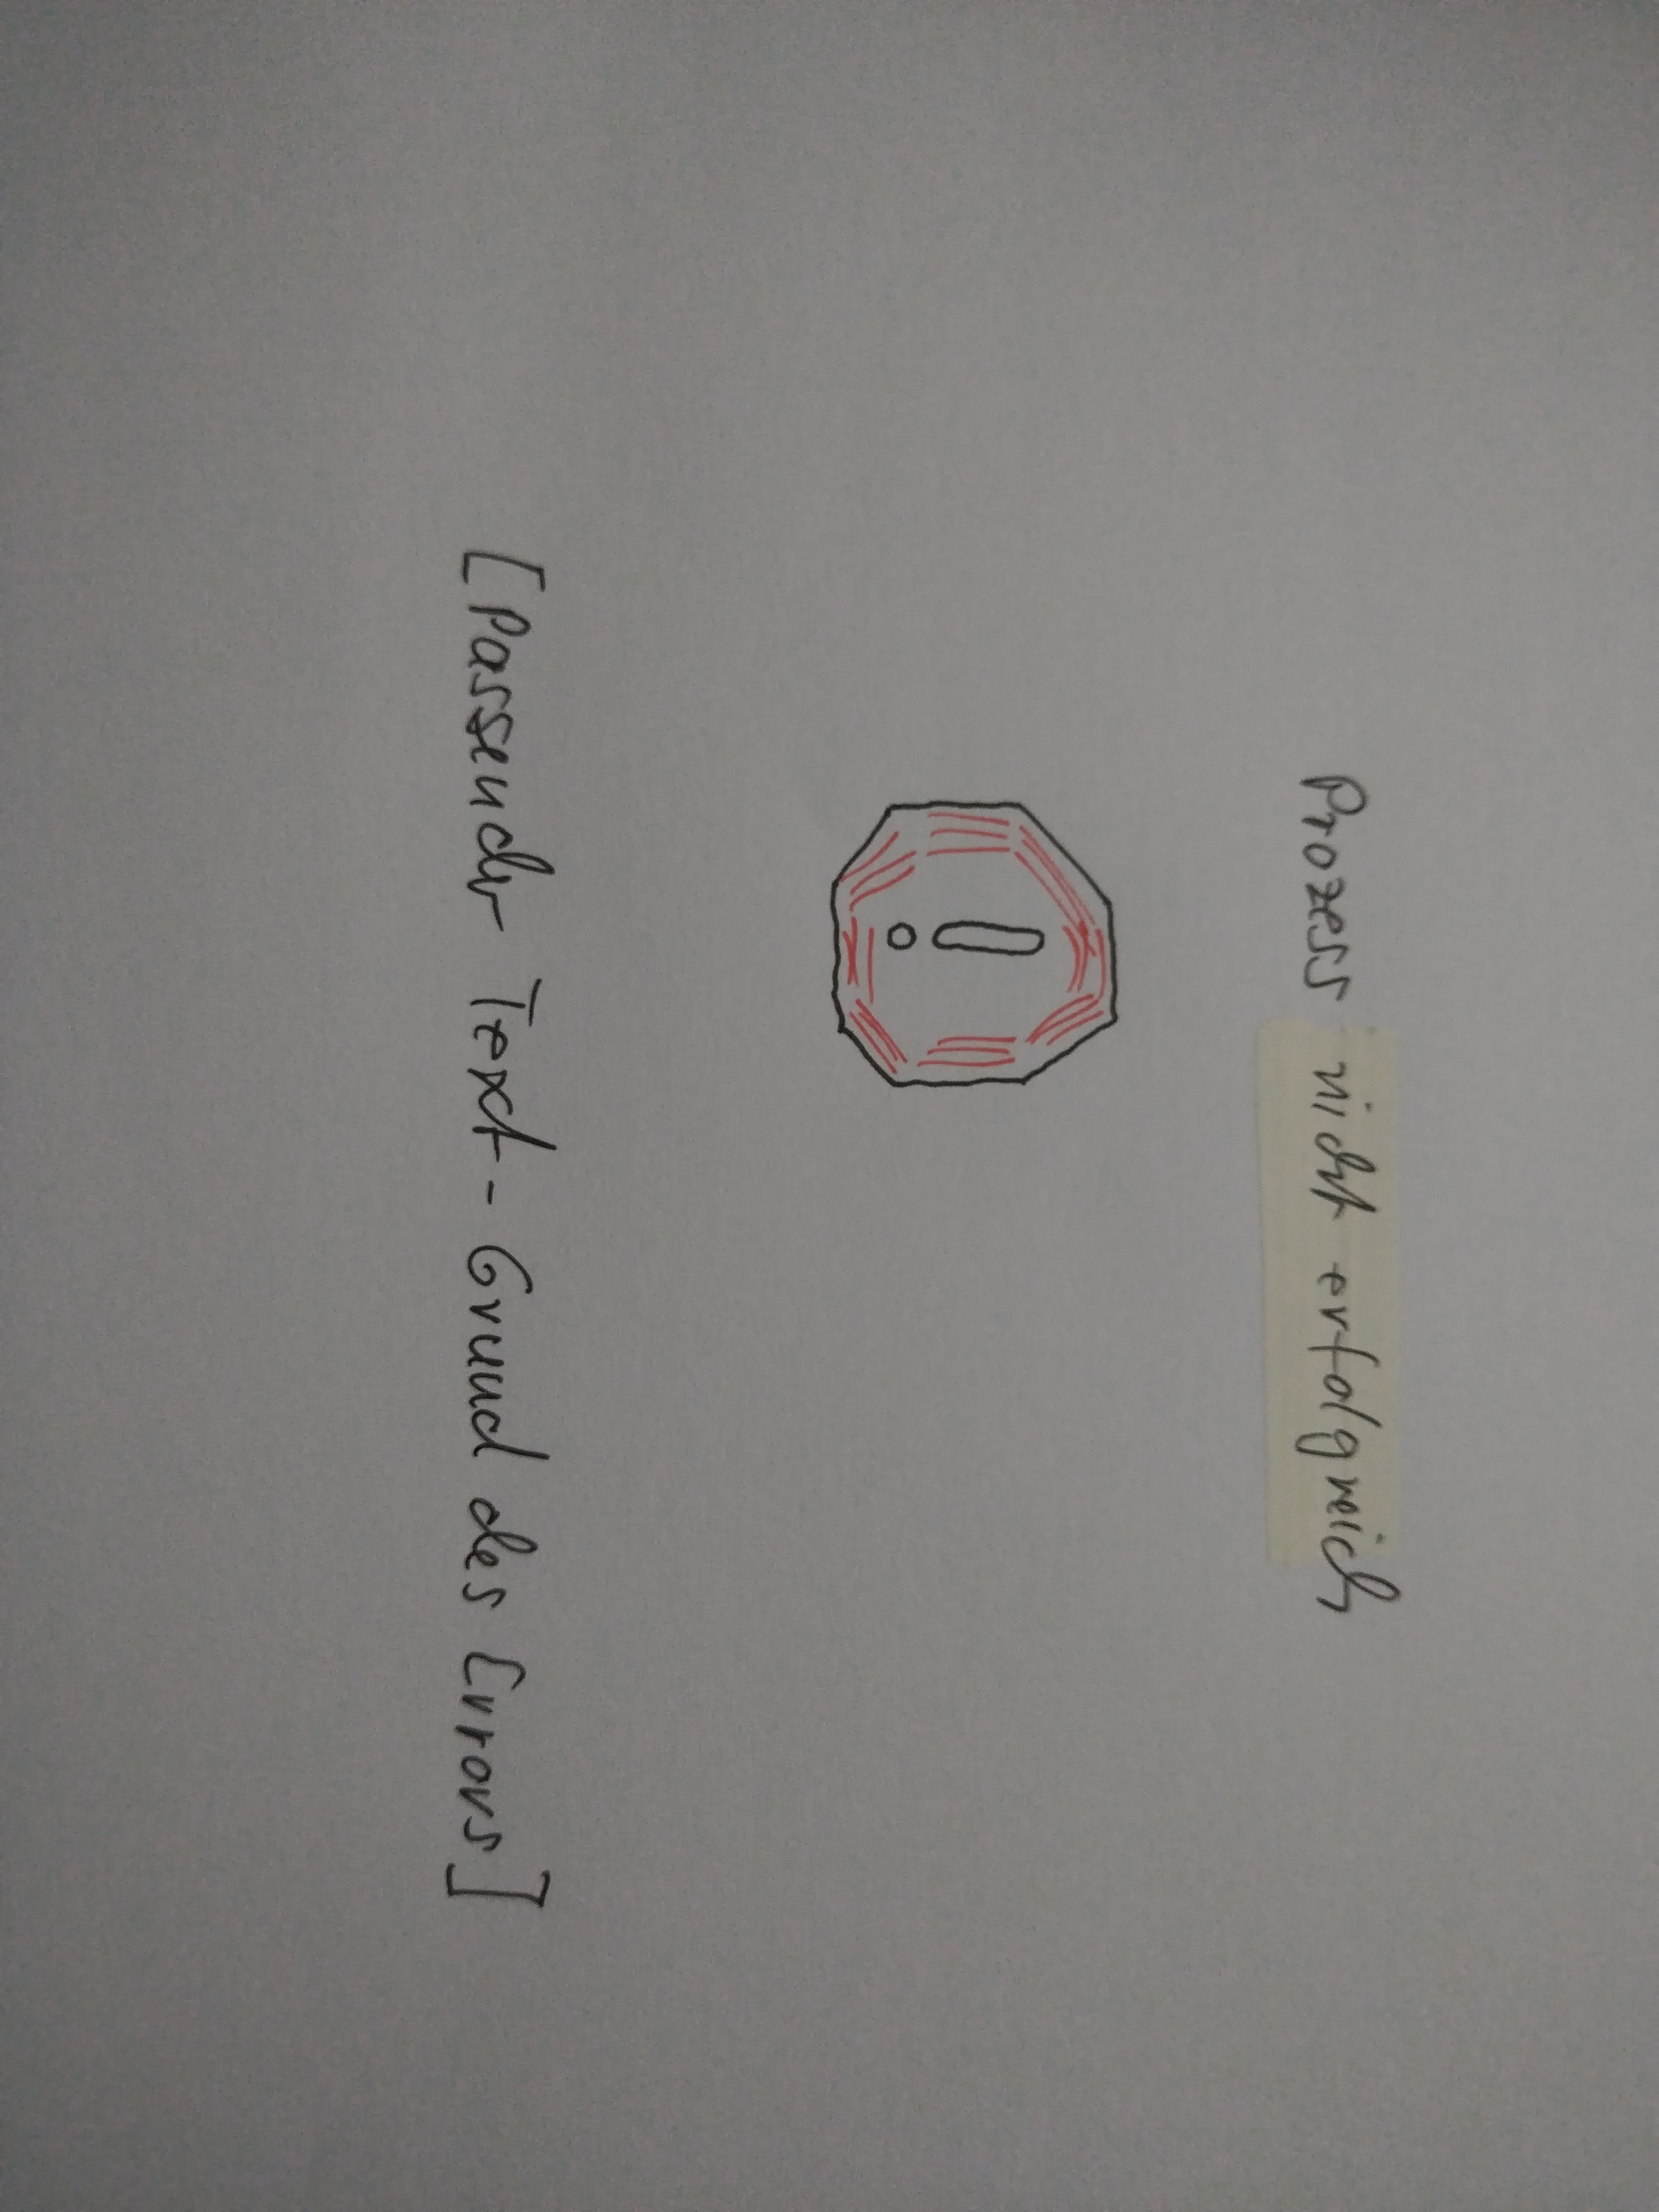 Prozess nicht erfolgreich
!
[Passender Text - Grund des Errors]